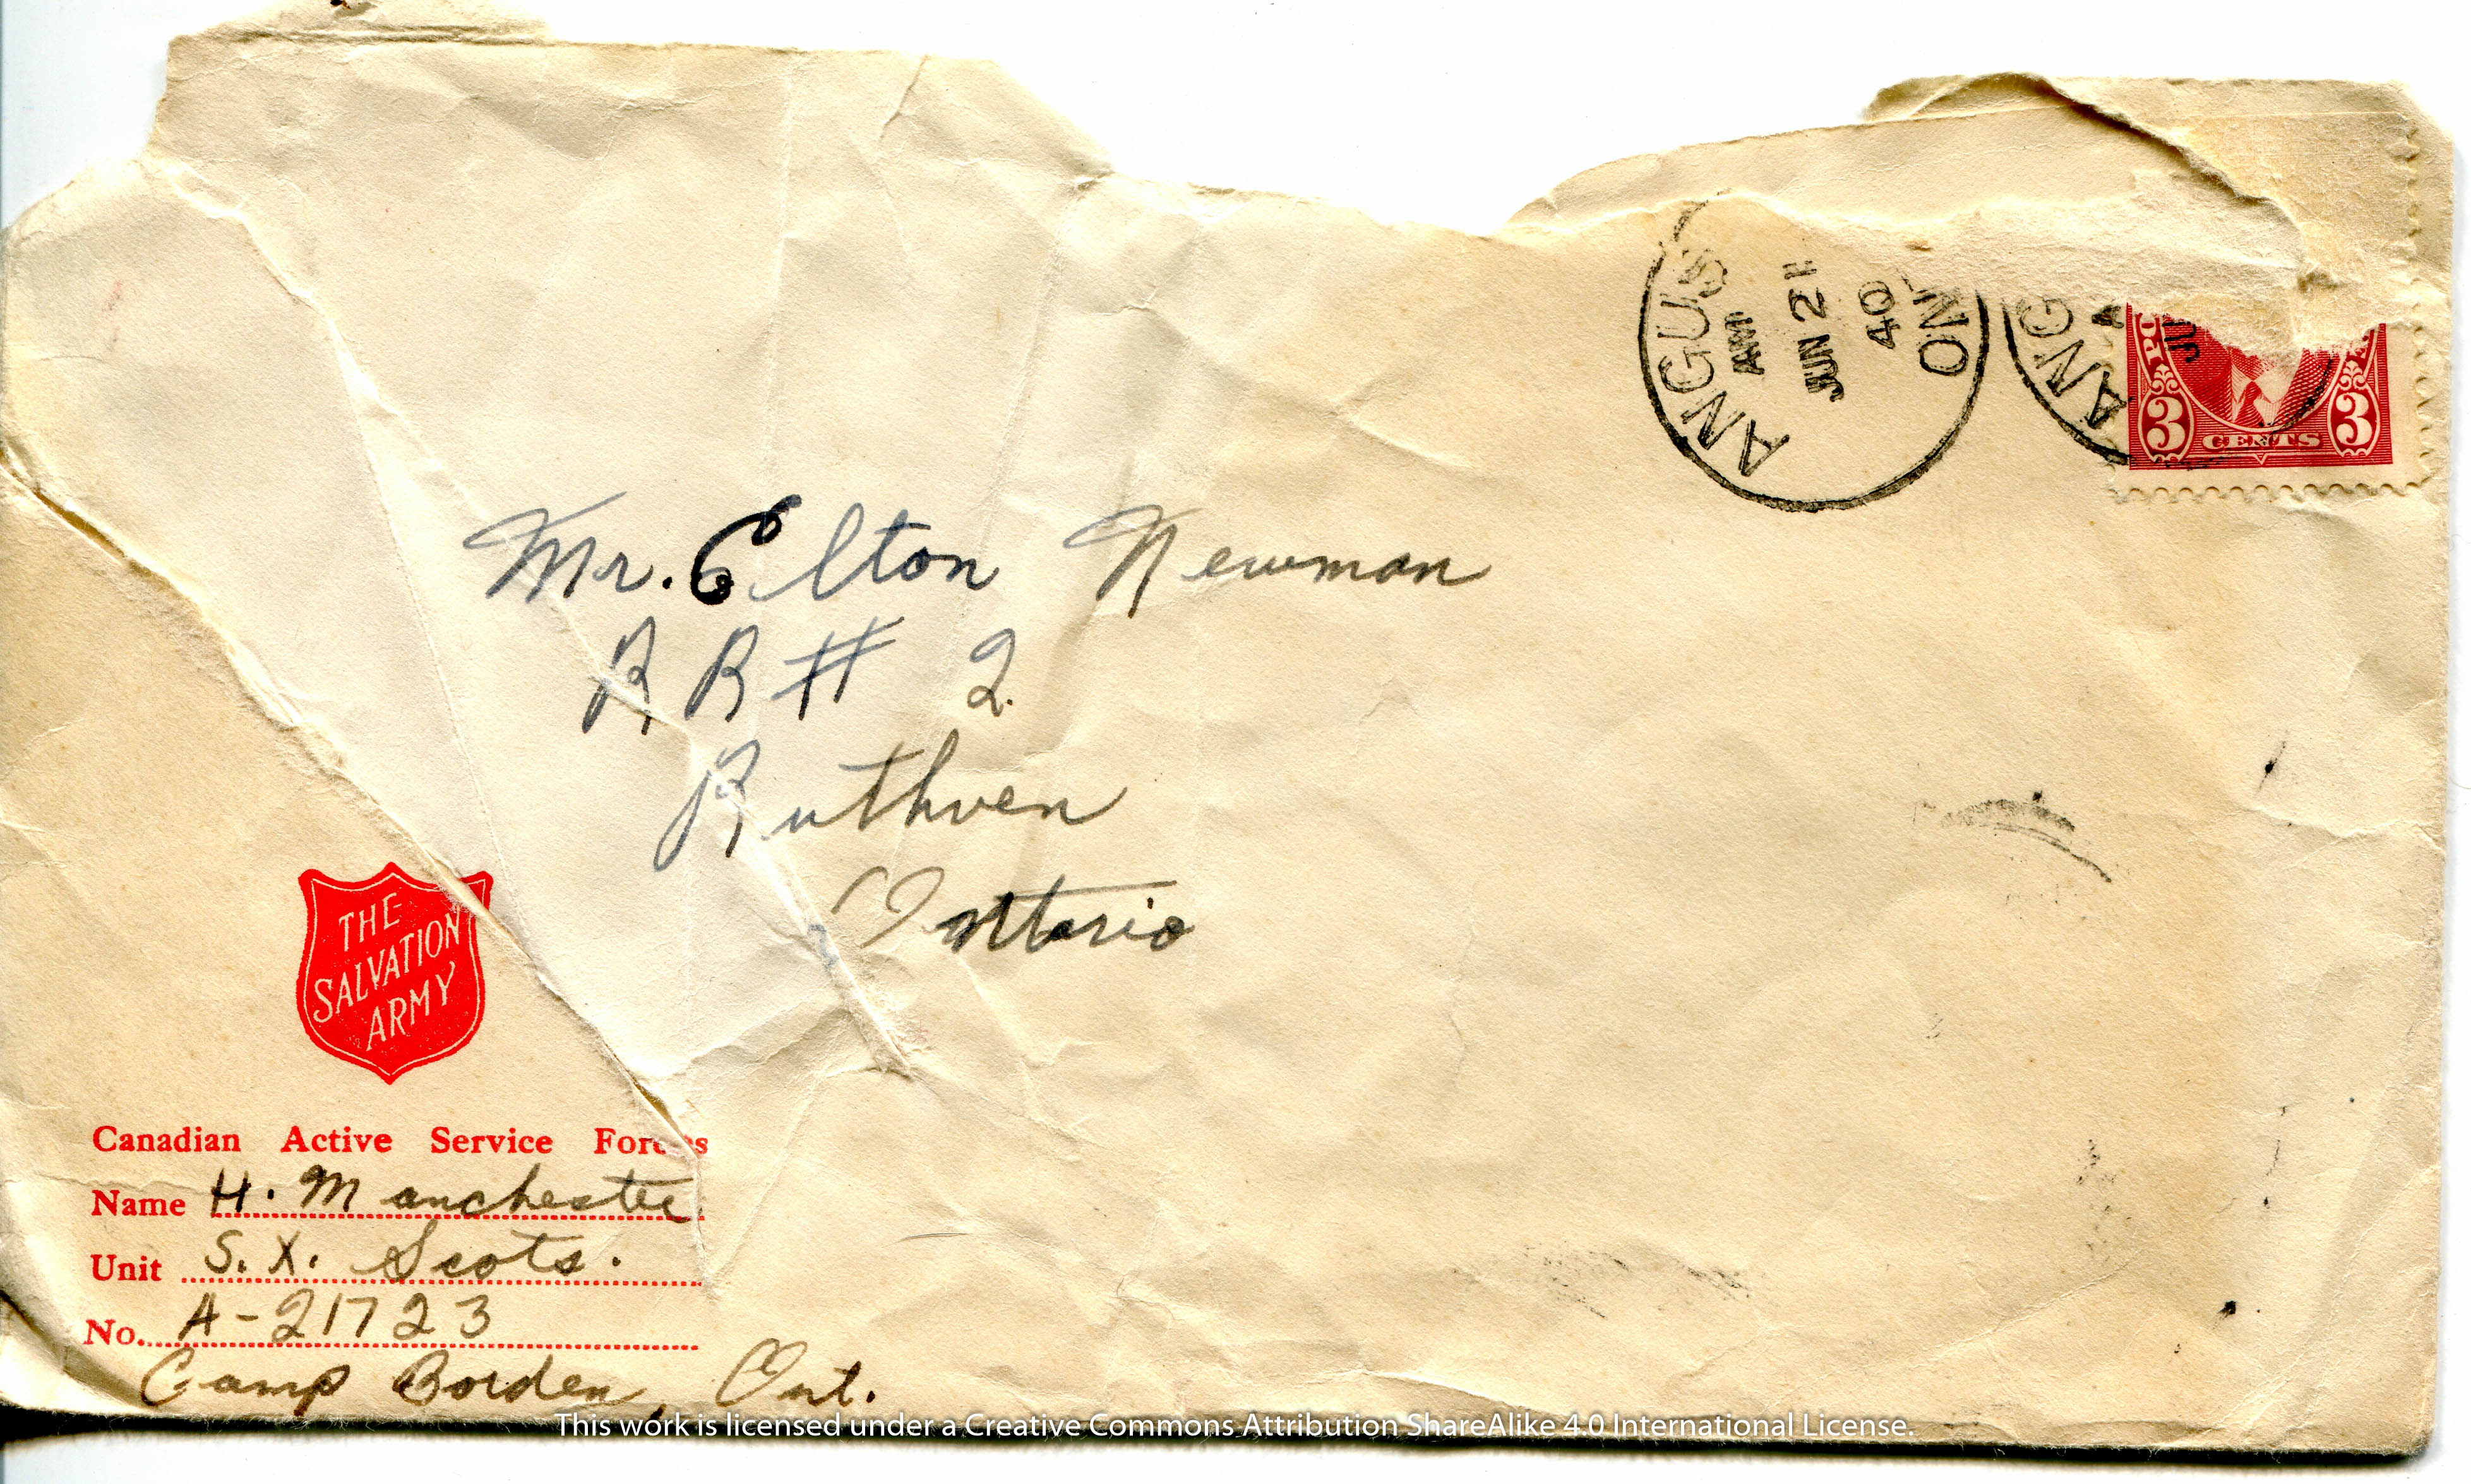 ANGUS
AM
JUN 21
40
ONT
ANG
A
JU
PO
3 CENTS 3
Mr. Elton Newman
R R # 2.
Ruthven
Ontario
THE
SALVATION
ARMY
Canadian Active Service Forces
Name H. Manchester
Unit S. X. Scots.
No. A-21723
Camp Borden, Ont.
This work is licensed under a Creative Commons Attribution ShareAlike 4.0 International License.